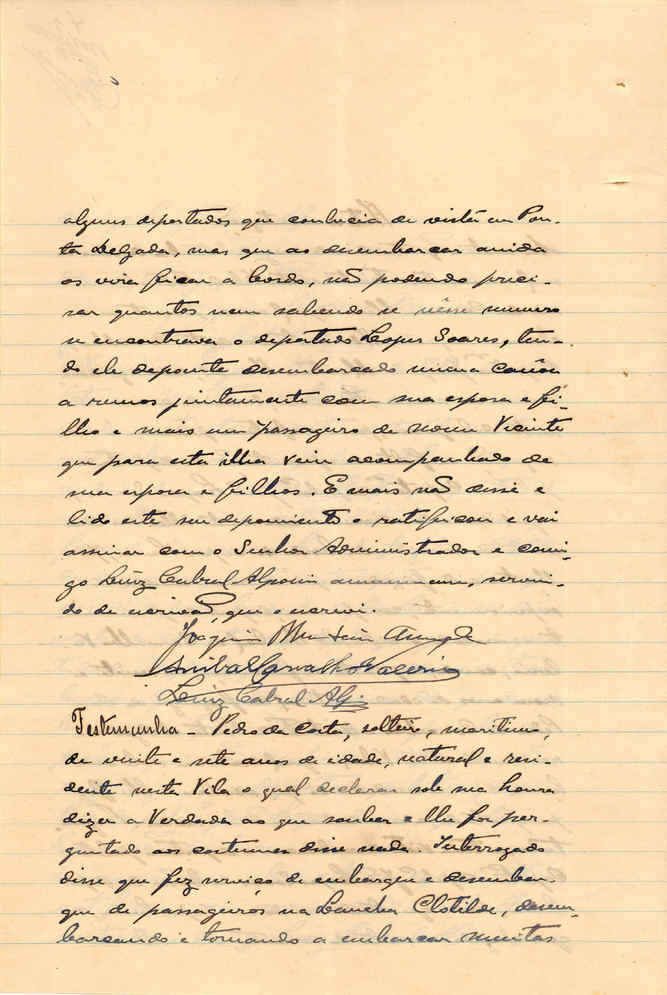 alguns deportados que conhecia de vista em Pon-
ta Delgada, mas que ao desembarcar ainda
os vira ficar a bordo, não podendo preci-
sar quantos nem sabendo se nesse numero
se encontrava o deportado Lopes Soares, ten-
do ele depoente desembarcado numa canôa
a remos juntamente com sua esposa e fi-
lho e mais um passageiro de nome Vicente
que para esta ilha veiu acompanhado de
sua esposa e filhos. E mais não disse e
lido este seu depoimento o ratificou e vai
assinar com o Senhor Administrador e comi-
go Luiz Cabral Alpoim amanuense, servin-
do de escrivão, que o escrevi.
Joaquim Monteiro
Anibal Carvalho Valerio
Luiz Cabral Alp
Testemunha - Pedro da Costa, solteiro, maritimo,
de vinte e sete anos de idade, natural e resi-
dente nesta Vila o qual declarou sob sua honra
dizer a Verdade ao que souber e lhe for per-
guntado aos costumes disse nada. Interrogado
disse que fez serviço de embarque e desembar-
que de passageiros na Lancha Clotilde, desem-
barcando e tornando a embarcar muitos